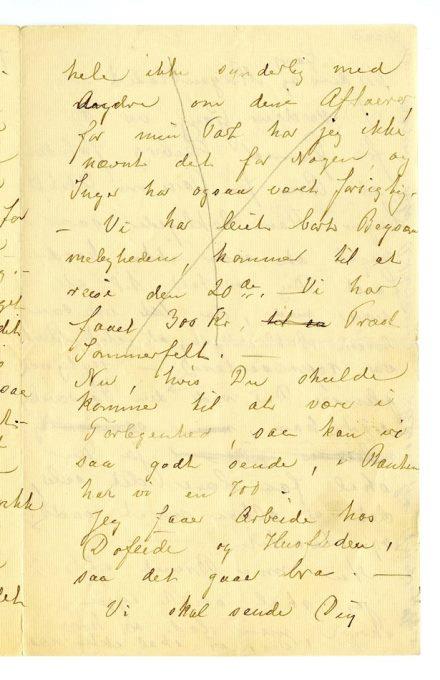 hele ikke synderlig med
Andre om dine Affairer,
for min Part har jeg ikke
nævnt det for Nogen og
Inger har ogsaa været forsigtig.
– Vi har leiet bort
kommer til at
reise den 20de. Vi har
faaet 300 Kr, til
Sommerfelt. –
Nu, hvis Du skulde
komme til at være i
Forlegenhed, saa kan vi
saa godt sende, i Banken
har vi en 700 –
Jeg faaer Arbeide hos
og
saa det gaar bra. –
Vi skal sende Dig
for